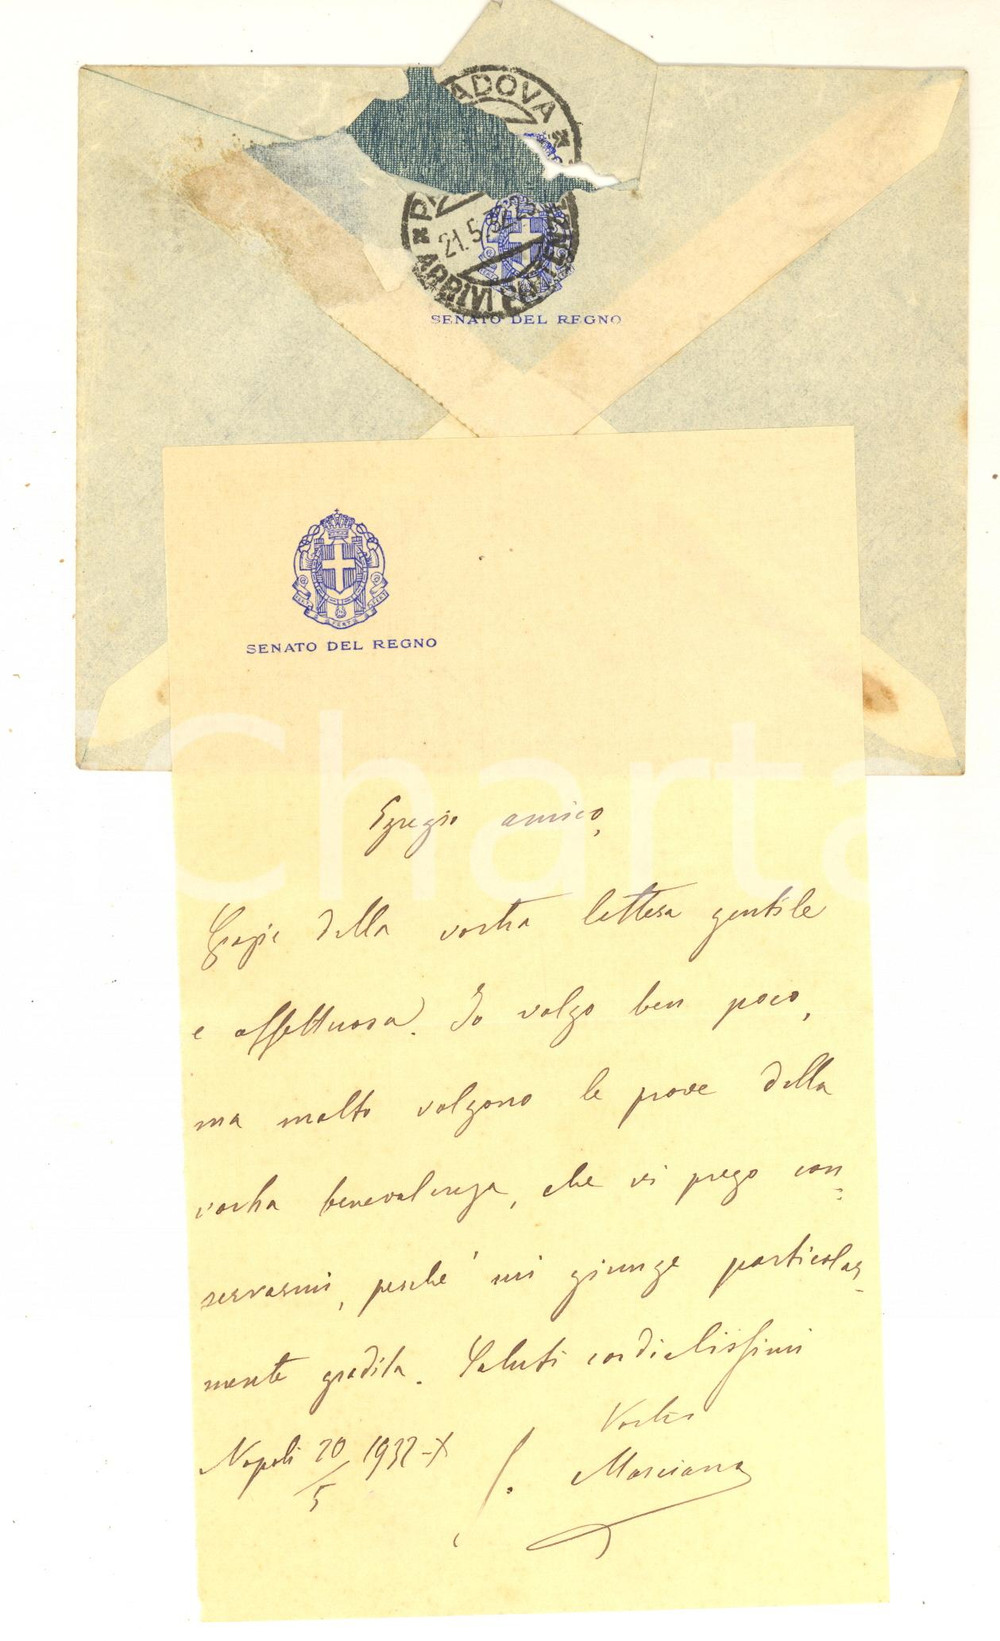 PADOVA
21.5.32.23
ARRIVI
SENATO DEL REGNO
SENATO DEL REGNO
Charta
Egregio amico,
Grazie della vostra lettera gentile
e affettuosa. Io valgo ben poco,
ma molto valgono le prove della
vostra benevolenza, che vi prego con=
servarmi, perché mi giunge particolar-
mente gradita. Saluti cordialissimi
Vostro
Napoli 20/5 1932-X
Marciano